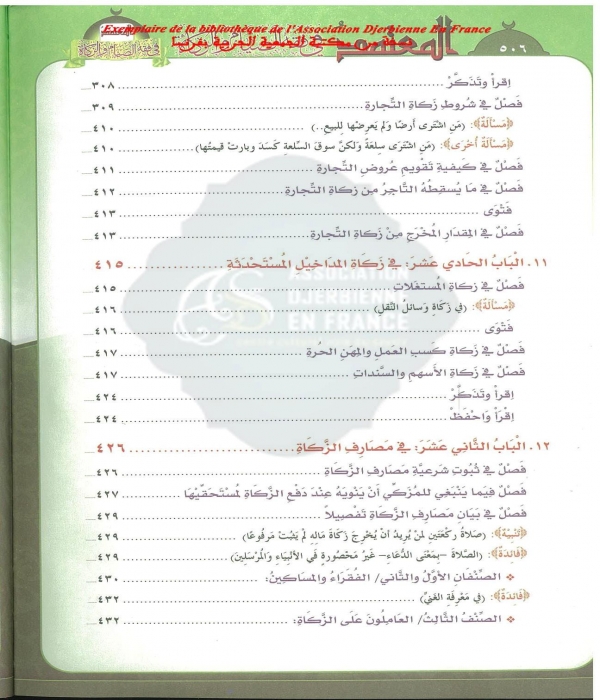 Exemplaire de la bibliothèque de l'Association Djerbienne En France
٥٠٦
اِقرأْ وتَذَكَّرْ ٣٠٨
فَصْلٌ في شُروطِ زَكاةِ التِّجارة ٣٠٩
﴿مَسْأَلَة﴾: (مَن اشْتَرى أرضًا وَلم يَعرِضْها للبيعِ..) ٤١٠
﴿مَسْأَلَة أُخرَى﴾: (مَن اشْتَرى سِلعَةً وَلكنْ سوقَ السِّلعةِ كَسَدَ وبارتْ قيمتُها) ٤١٠
فَصْلٌ في كَيفيةِ تَقويمِ عُروضِ التِّجارة ٤١١
فَصْلٌ في مَا يُسقِطُهُ التَّاجرُ مِن زكاةِ التِّجارة ٤١٢
فَتْوَى ٤١٣
فَصْلٌ في المِقدارِ المُخْرَجِ مِنْ زَكاةِ التِّجارة ٤١٣
١١. الْبابُ الحادي عَشَرَ: في زَكاةِ المَداخيلِ المُسْتَحْدَثَةِ ٤١٥
فَصْلٌ في زكاةِ المُستغَلاتِ ٤١٥
﴿مَسْأَلَة﴾: (في زَكَاة وَسائلُ النَّقلِ) ٤١٦
فَتْوَى ٤١٦
فَصْلٌ في زَكاةِ كَسبِ العملِ والمِهَنِ الحُرةِ ٤١٧
فَصْلٌ في زَكاةِ الأسهمِ والسَّنداتِ ٤١٧
اِقرأْ وتَذَكَّرْ ٤٢٤
اِقْرَأْ وَاحْفَظْ ٤٢٤
ASSOCIATION
DJERBIENNE
EN FRANCE
١٢. الْبابُ الثَّاني عَشَرَ: في مَصَارِفِ الزَّكَاةِ ٤٢٦
فَصْلٌ في ثُبُوتِ شرعيَّةِ مَصَارِفِ الزَّكاةِ ٤٢٦
فَصْلٌ فيمَا يَنْبَغي للمُزَكِّي أنْ يَنْوِيَهُ عِنْدَ دَفْعِ الزَّكاةِ لمُسْتَحقِّيْهَا ٤٢٧
فَصْلٌ في بَيَانِ مَصَارِفِ الزَّكاةِ تَفْصِيلاً ٤٢٩
﴿تَنْبِيهٌ﴾: (صَلاةُ رَكْعَتَينِ لمَنْ يُرِيدُ أنْ يُخْرِجَ زَكَاةَ مَالِهِ لَمْ يَثْبُتْ مَرفُوعًا) ٤٢٩
﴿فَائِدَةٌ﴾: (الصَّلاةُ –بِمَعْنَى الدُّعَاءِ- غَيرُ مَحْصُورَةٍ في الأنْبِيَاءِ وَالْمُرْسَلِينَ) ٤٢٩
❖ الصِّنْفَانِ الأوَّلُ والثَّاني/ الفُقَرَاءُ والمَسَاكِينُ: ٤٣٠
﴿فَائِدَةٌ﴾: (في مَعْرِفَةِ الغَنِيِّ) ٤٣٢
❖ الصِّنْفُ الثَّالِثُ/ العَامِلُونَ عَلَى الزَّكَاةِ: ٤٣٢